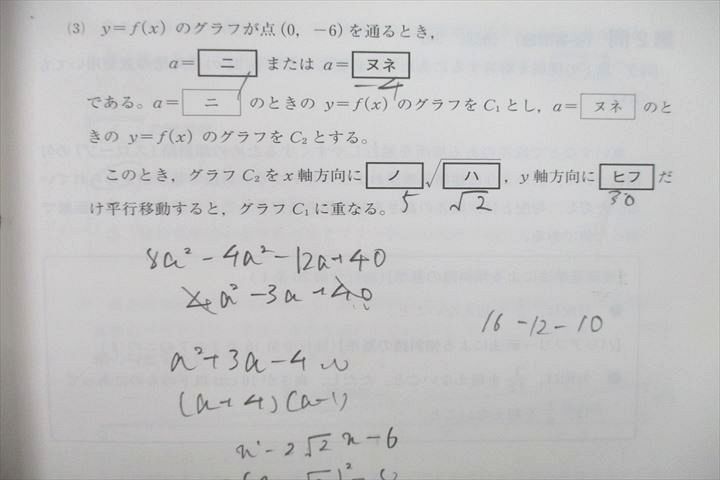 (3) y=f(x) のグラフが点(0, −6)を通るとき,
a= ニ または a= ヌネ
−4
である。a= ニ のときの y=f(x) のグラフをC₁とし, a= ヌネ のと
きの y=f(x) のグラフをC₂とする。
このとき, グラフC₂をx軸方向に ノ √ハ , y軸方向に ヒフ だ
5 √2 30
け平行移動すると, グラフC₁に重なる。
8a² − 4a² − 12a + 40
a² − 3a + 40
16 − 12 − 10
a² + 3a − 4
(a + 4)(a − 1)
x² − 2√2 x − 6